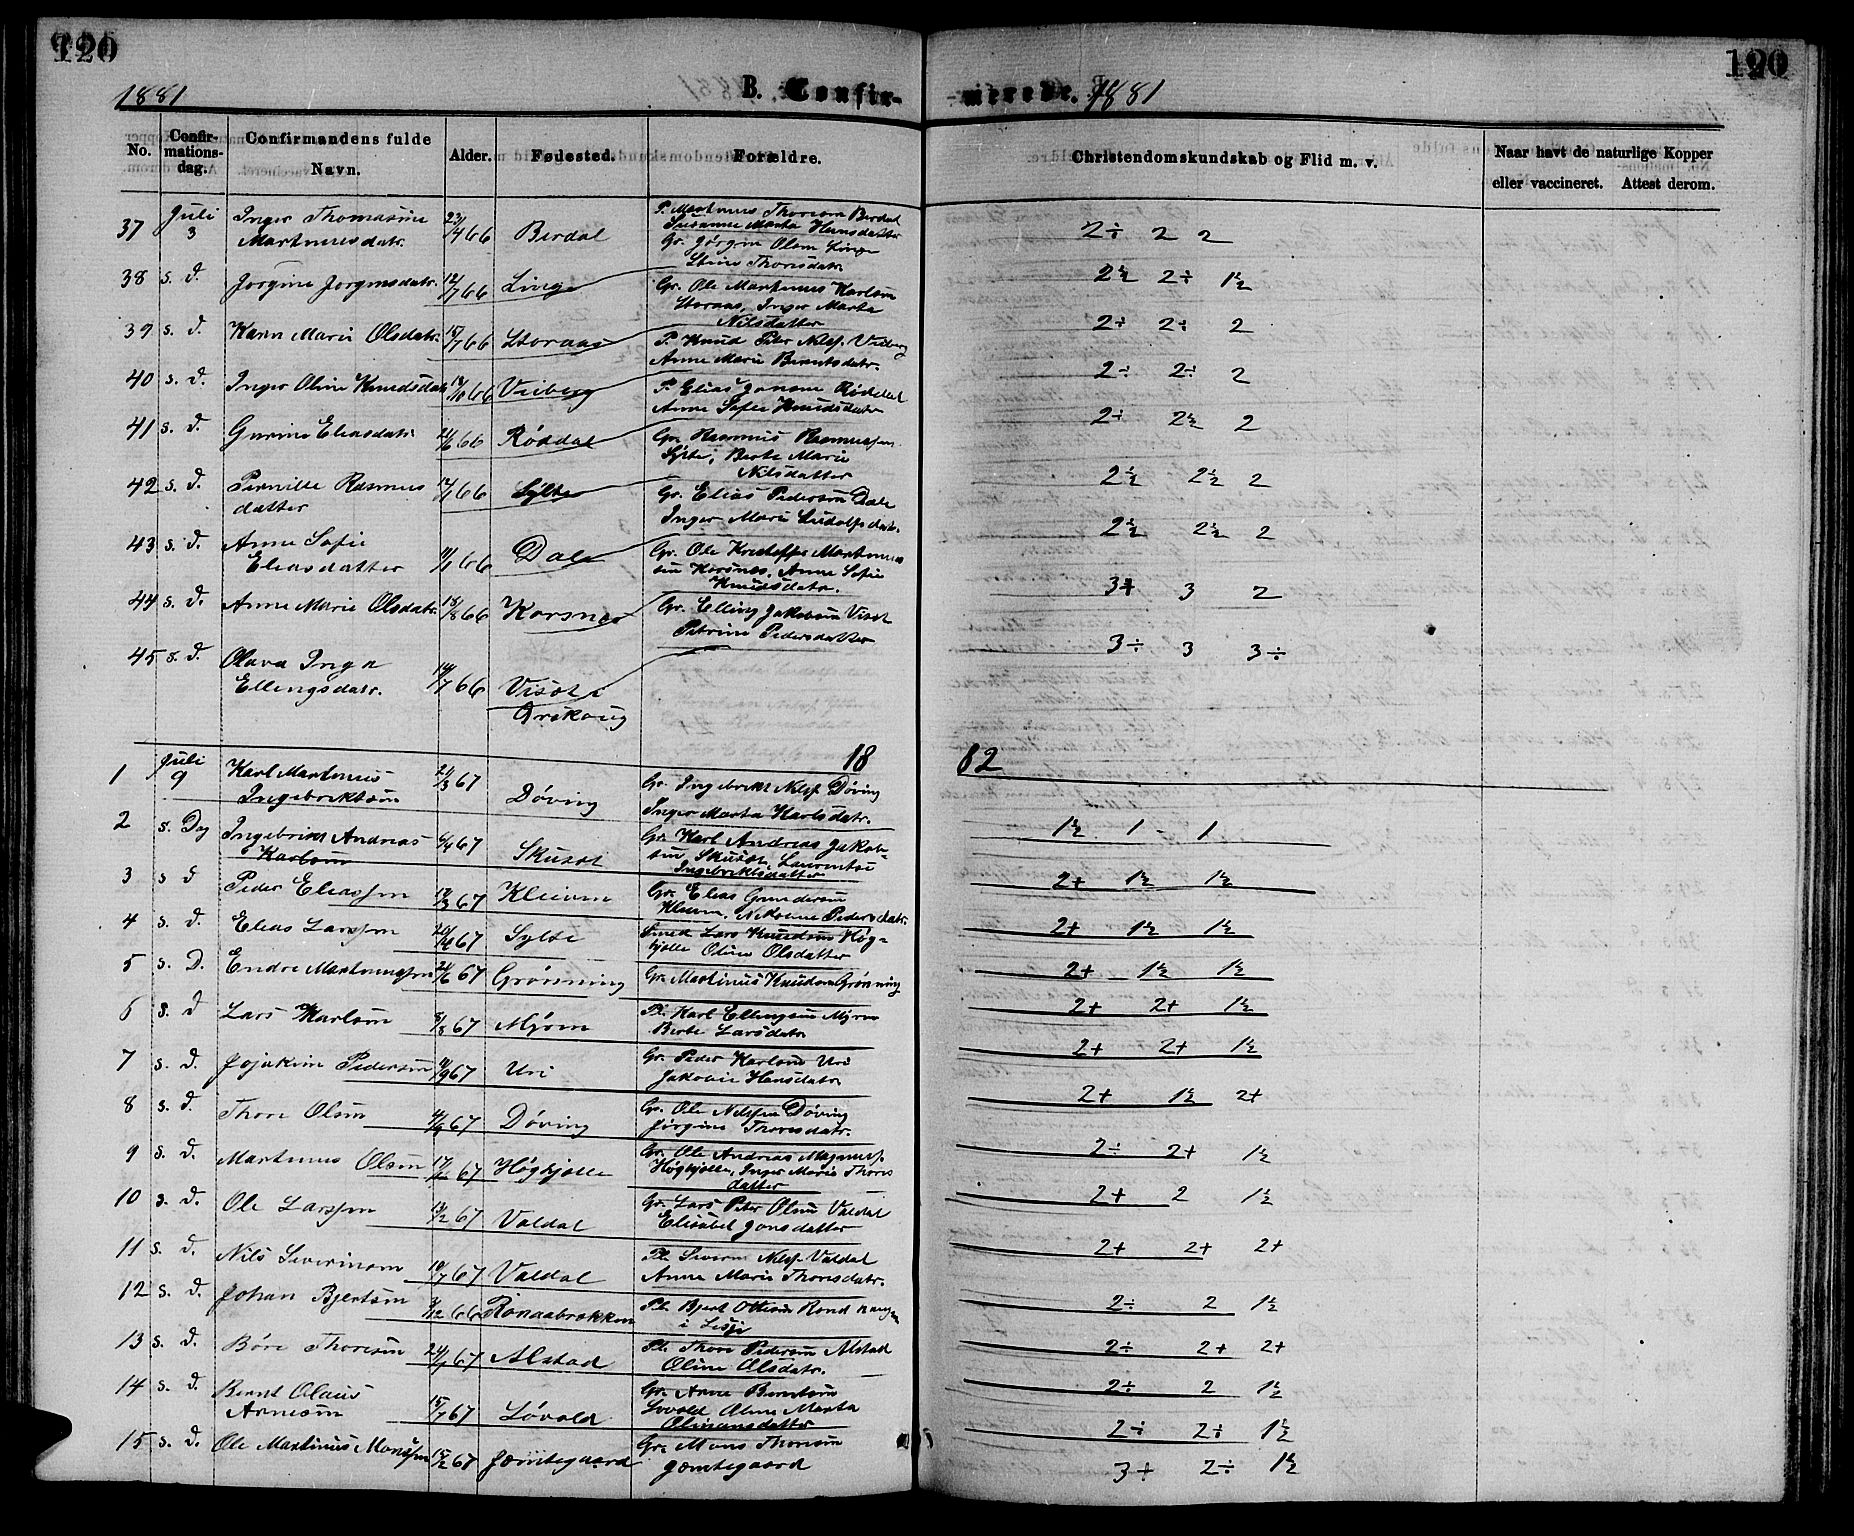 120
120
1881
B. Confir-
merede. 1881
No.
Confir-
mations-
dag.
Confirmandens fulde
Navn.
Alder.
Fødested.
Forældre.
Christendomskundskab og Flid m. v.
Naar havt de naturlige Kopper
eller vaccineret. Attest derom.
37 Juli 3 Inger Thomasine Martinusdatr. 23/4 66 Berdal P. Martinus Thoresen Berdal
Susanne Marta Hansdatter 2÷ 2 2
Gr. Jørgen Olsen Linge
Stine Thoresdatr.
38 s. d. Jorgine Jorgensdatr. 12/7 66 Linge 2½ 2÷ 1½
Gr. Ole Martinus Karlsen
Storaas, Inger Marta
Nilsdatter
39 s. d. Karen Marie Olsdatr. 15/7 66 Storaas 2÷ 2÷ 2
P. Knud Peder Nilss. Viiberg
Anne Marie Berntsdatr.
40 s. d. Inger Oline Knudsdatr 66 Viiberg 2÷ 2÷ 2
P. Elias Jonsen Røddal
Anne Sofie Knudsdatr
41 s. d. Gurine Eliasdatr. 66 Røddal 2÷ 2½ 2
Gr. Rasmus Rasmussen
Sylte, Berte Marie
Nilsdatter
42 s. d. Pernille Rasmus
datter 66 Sylte 2½ 2½ 2
Gr. Elias Pedersen Dale
Inger Marie Ludolfsdatr.
43 s. d. Anne Sofie
Eliasdatter 66 Dale 2½ 2½ 2
Gr. Ole Kristoffer Martinus
sen Korsnes, Anne Sofie
Knudsdatr.
44 s. d. Anne Marie Olsdatr. 15/8 66 Korsnes 3+ 3 2
Gr. Elling Jakobsen Viset
Petrine Pedersdatter
45 s. d. Olava Inga
Ellingsdatr. 14/7 66 Viset i
Ørskoug 3÷ 3 3÷
18 82
1 Juli 9 Karl Martinus
Ingebriktsen 21/3 67 Døving Gr. Ingebrikt Nilss. Døving
Inger Marta Karlsdatr. 1½ 1 - 1
2 s. Dag Ingebrikt Andreas
Karlsen 6/4 67 Skuset Gr. Karl Andreas Jakob-
sen Skuset, Laurentse
Ingebriktsdatter 2+ 1½ 1½
3 s d Peder Eliassen 67 Kleiven Gr. Elias Gundersen
Kleiven, Nikoline Pedersdatr. 2+ 1½ 1½
4 s. d. Elias Larssen 67 Sylte Smed Lars Knudsen Høg-
hjelle Oline Olsdatter 2+ 1½ 1½
5 s. D. Endre Martinussen 21/6 67 Grønning Gr. Martinus Knudsen Grønning 2+ 2+ 1½
6 s. d Lars Karlsen 8/8 67 Myren Pl. Karl Ellingsen Myren
Berte Larsdatr 2+ 2+ 1½
7 s. d. Jojakim Pedersen 67 Uri Gr. Peder Karlsen Uri
Jakobie Hansdatr. 2+ 1½ 2+
8 s. d. Thore Olsen 67 Døving Gr. Ole Nilssen Døving
Jørgine Thoresdatr. 2÷ 2+ 1½
9 s. d. Martinus Olsen 67 Høghjelle Gr. Ole Andreas Magnuss.
Høghjelle, Inger Marie Thores
datter 2+ 2 1½
10 s. d. Ole Larssen 13/2 67 Valdal Gr. Lars Peter Olsen Valdal
Elisabet Jonsdatter 2+ 2+ 2+
11 s. d. Nils Severinsen 10/7 67 Valdal Pl. Severin Nilss. Valdal
Anne Marie Thoresdatr. 2÷ 2 1½
12 s. d. Johan Bjertsen 3/12 66 Rønaabrækken Pl. Bjert Ottesen
i Lesje 2÷ 2+ 2+
13 s. d. Børe Thoresen 67 Alstad Pl. Thore Pedersen Alstad
Oline Olsdatr. 2÷ 2 1½
14 s. d. Bernt Olaus
Arnesen 15/7 67 Løvold Gr. Arne Berntsen
Lovold Oline Marta
Olinansdatter 2÷ 2÷ 1½
15 s. d. Ole Martinus Monssen 15/2 67 Jemtegaard Gr. Mons Thoresen
Jemtegaard 3+ 2÷ 1½